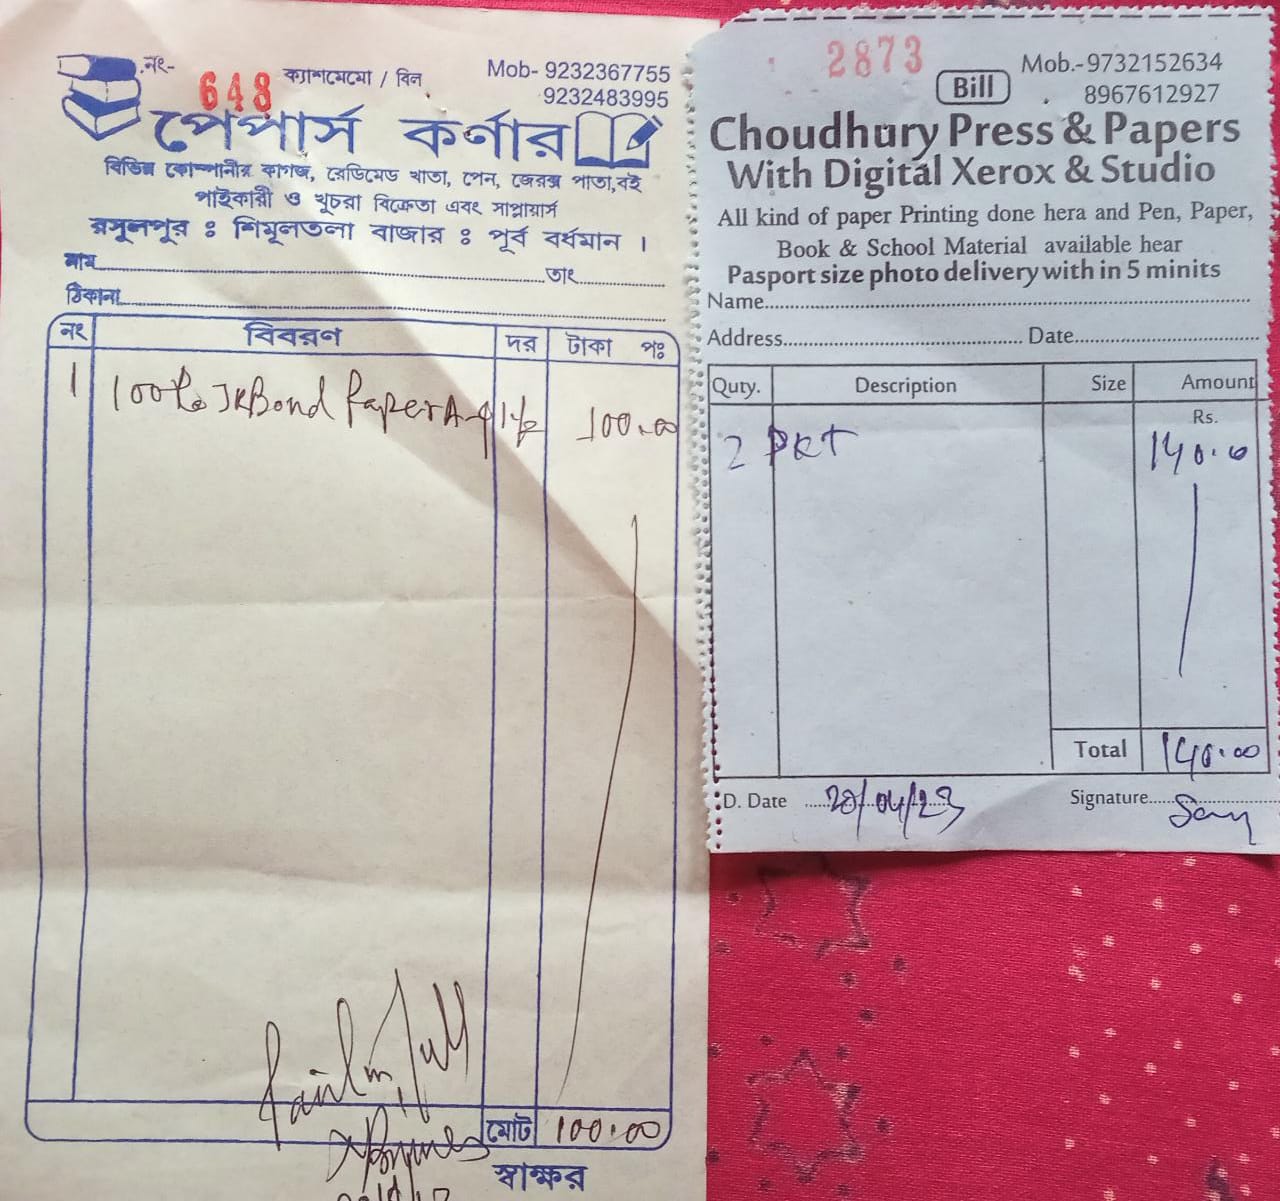 নং-
648
ক্যাশমেমো / বিল
Mob- 9232367755
9232483995
পেপার্স কর্ণার
বিভিন্ন কোম্পানীর কাগজ, রেডিমেড খাতা, পেন, জেরক্স পাতা,বই
পাইকারী ও খুচরা বিক্রেতা এবং সাপ্লায়ার্স
রসুলপুর ঃ শিমূলতলা বাজার ঃ পূর্ব বর্ধমান ।
নাম তাং
ঠিকানা
নং বিবরণ দর টাকা পঃ
1 100 JK Bond Paper A-4 100.00
Paid in Full
মোট 100.00
স্বাক্ষর
2873
Bill
Mob.-9732152634
8967612927
Choudhury Press & Papers
With Digital Xerox & Studio
All kind of paper Printing done hera and Pen, Paper,
Book & School Material available hear
Pasport size photo delivery with in 5 minits
Name
Address Date
Quty. Description Size Amount
Rs.
2 PKT 140.00
Total 140.00
D. Date 20/04/23 Signature